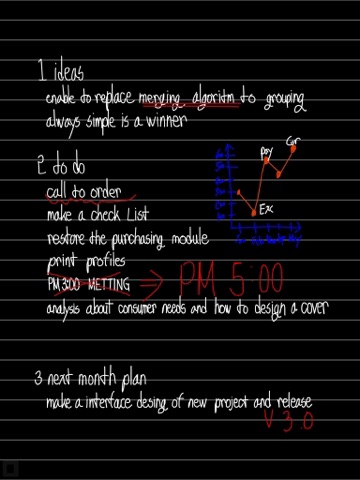 1 ideas
enable to replace merging algoritm to grouping
always simple is a winner
2 to do
call to order
make a check List
restore the purchasing module
print profiles
PM 3:00 METTING → PM 5:00
analysis about consumer needs and how to design a cover
Ex
3 next month plan
make a interface desing of new project and release
V 3.0